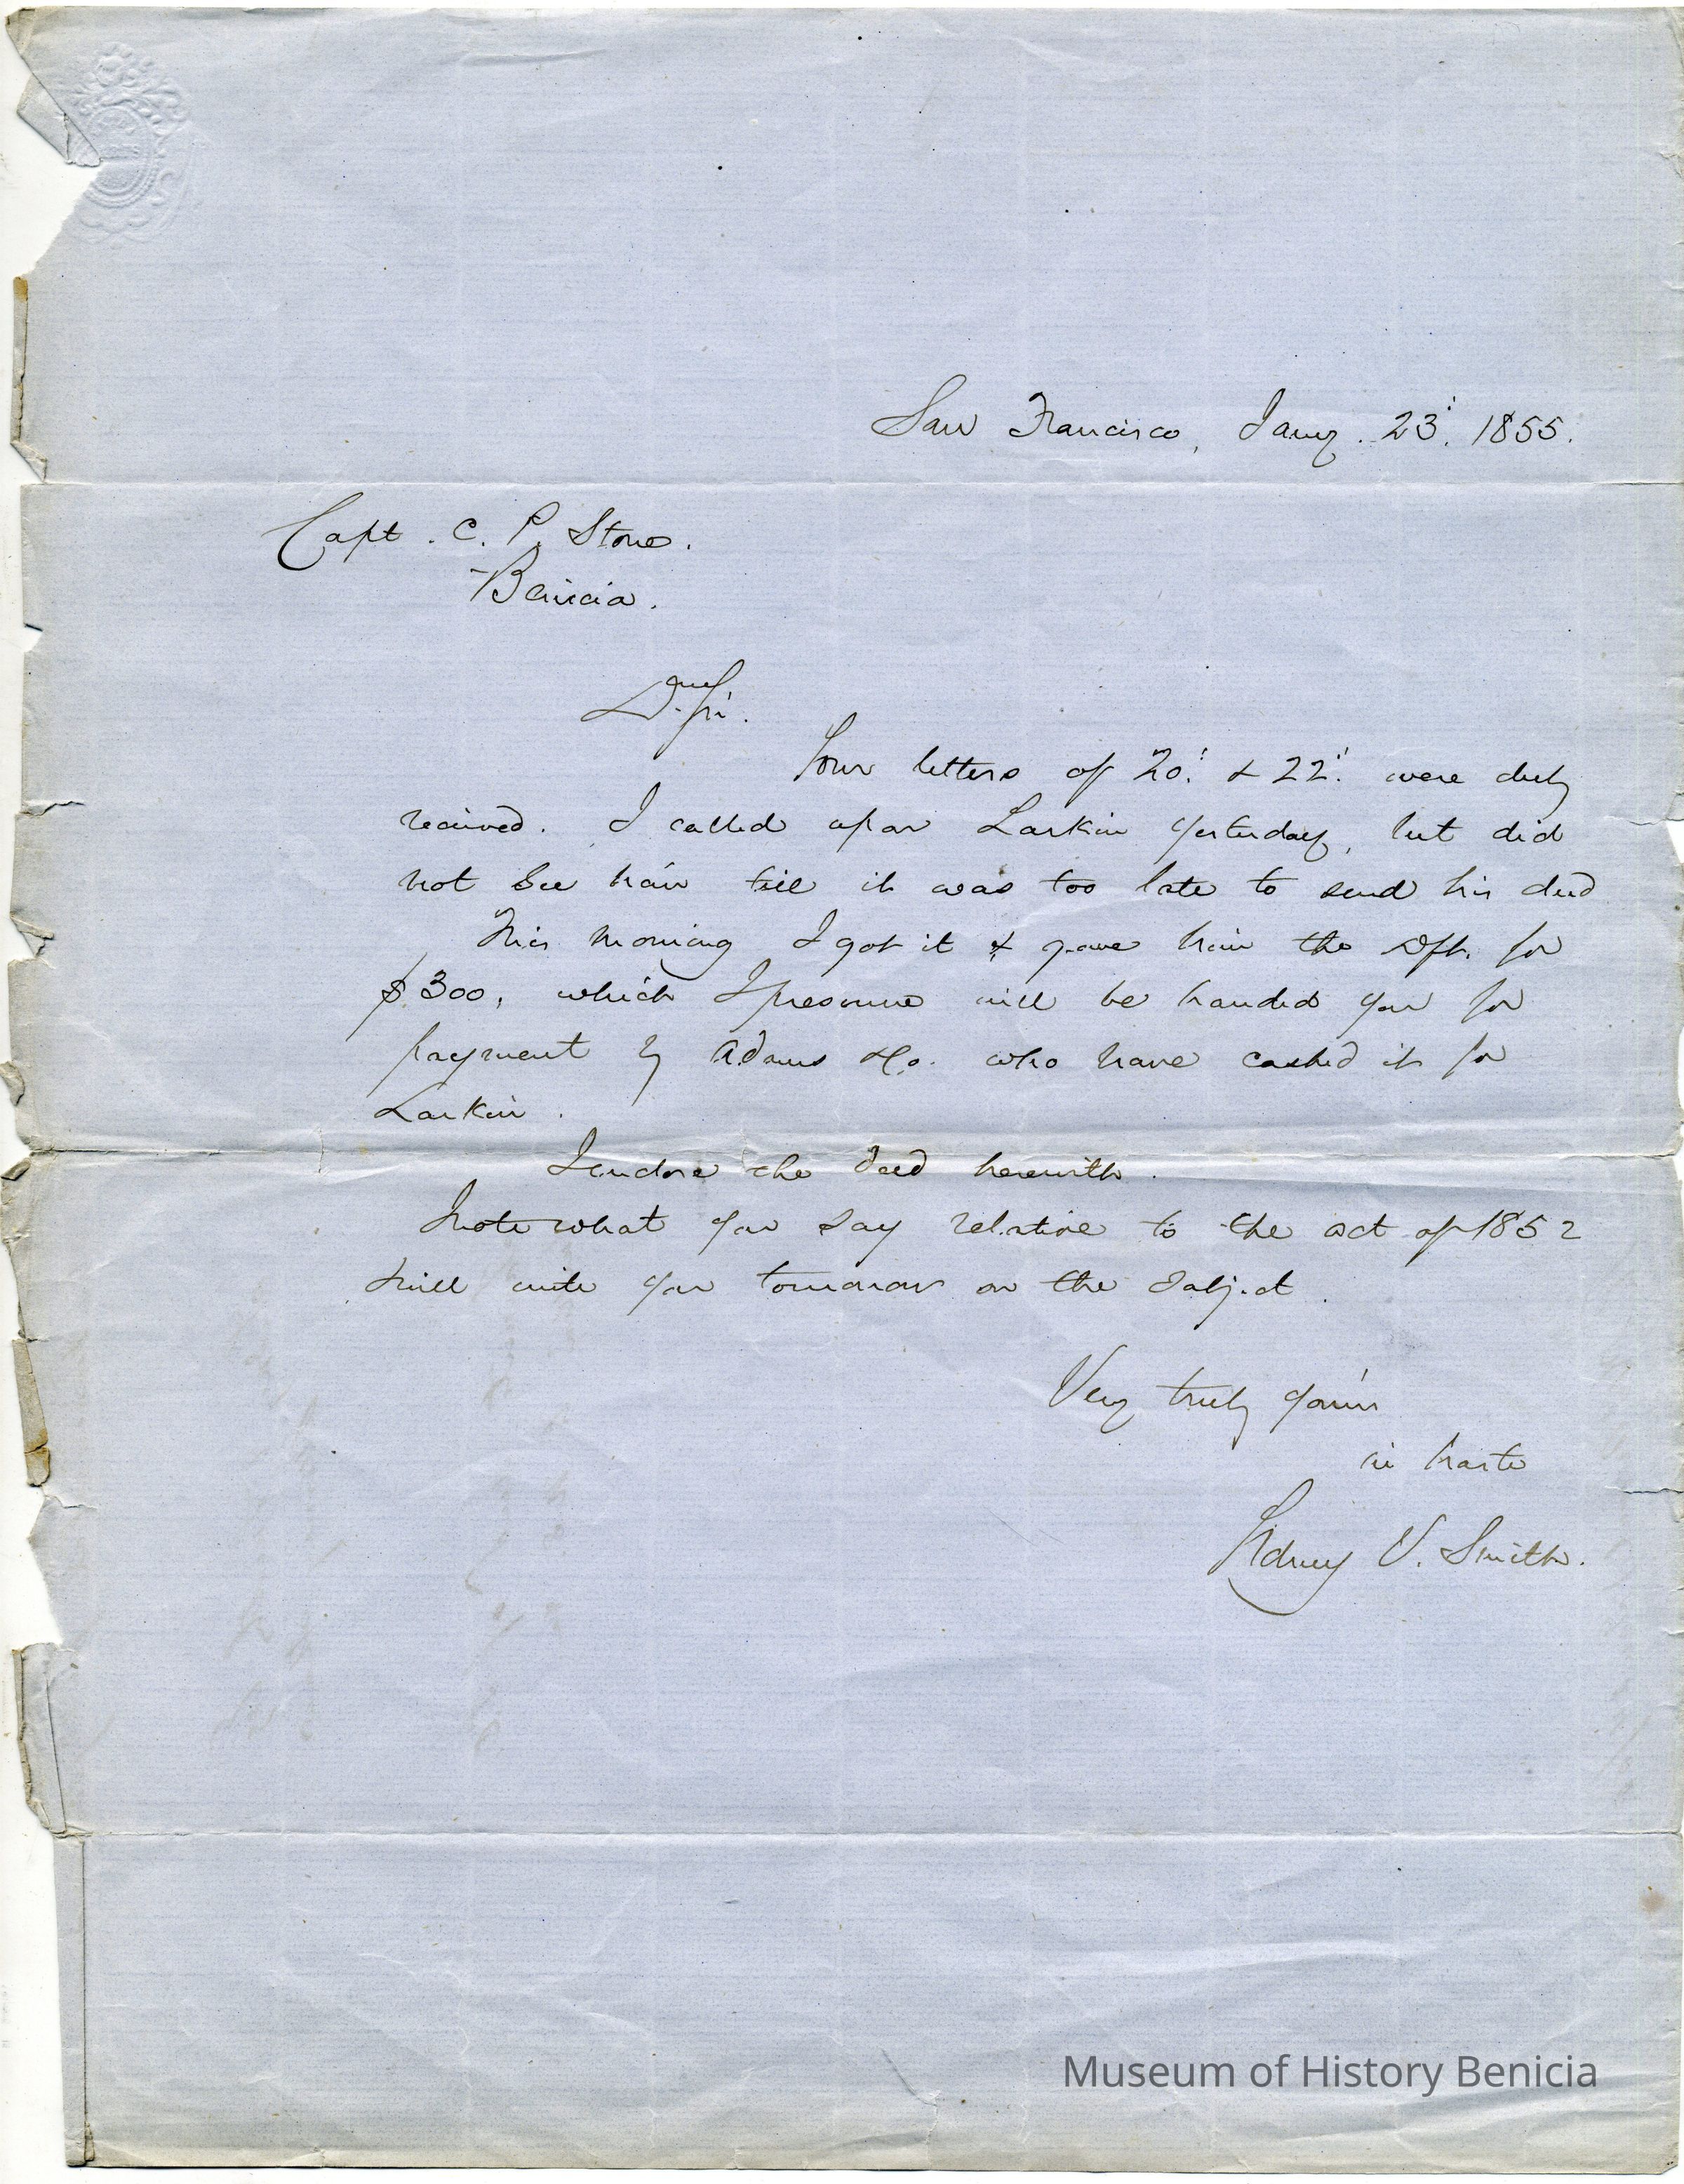 San Francisco, Jany. 23. 1855.
Capt. C. P. Stone.
Benicia.
D. Sir.
Your letters of 20. & 22. were duly
received. I called upon Larkin yesterday, but did
not see him till it was too late to send his deed
This morning I got it & gave him the dft. for
$300, which I presume will be handed you for
payment by Adams & Co. who have cashed it for
Larkin.
I endose the deed herewith.
I note what you say relative to the act of 1852
& will write you tomorrow on the subject.
Very truly yours
in haste
Sidney V. Smith.
Museum of History Benicia